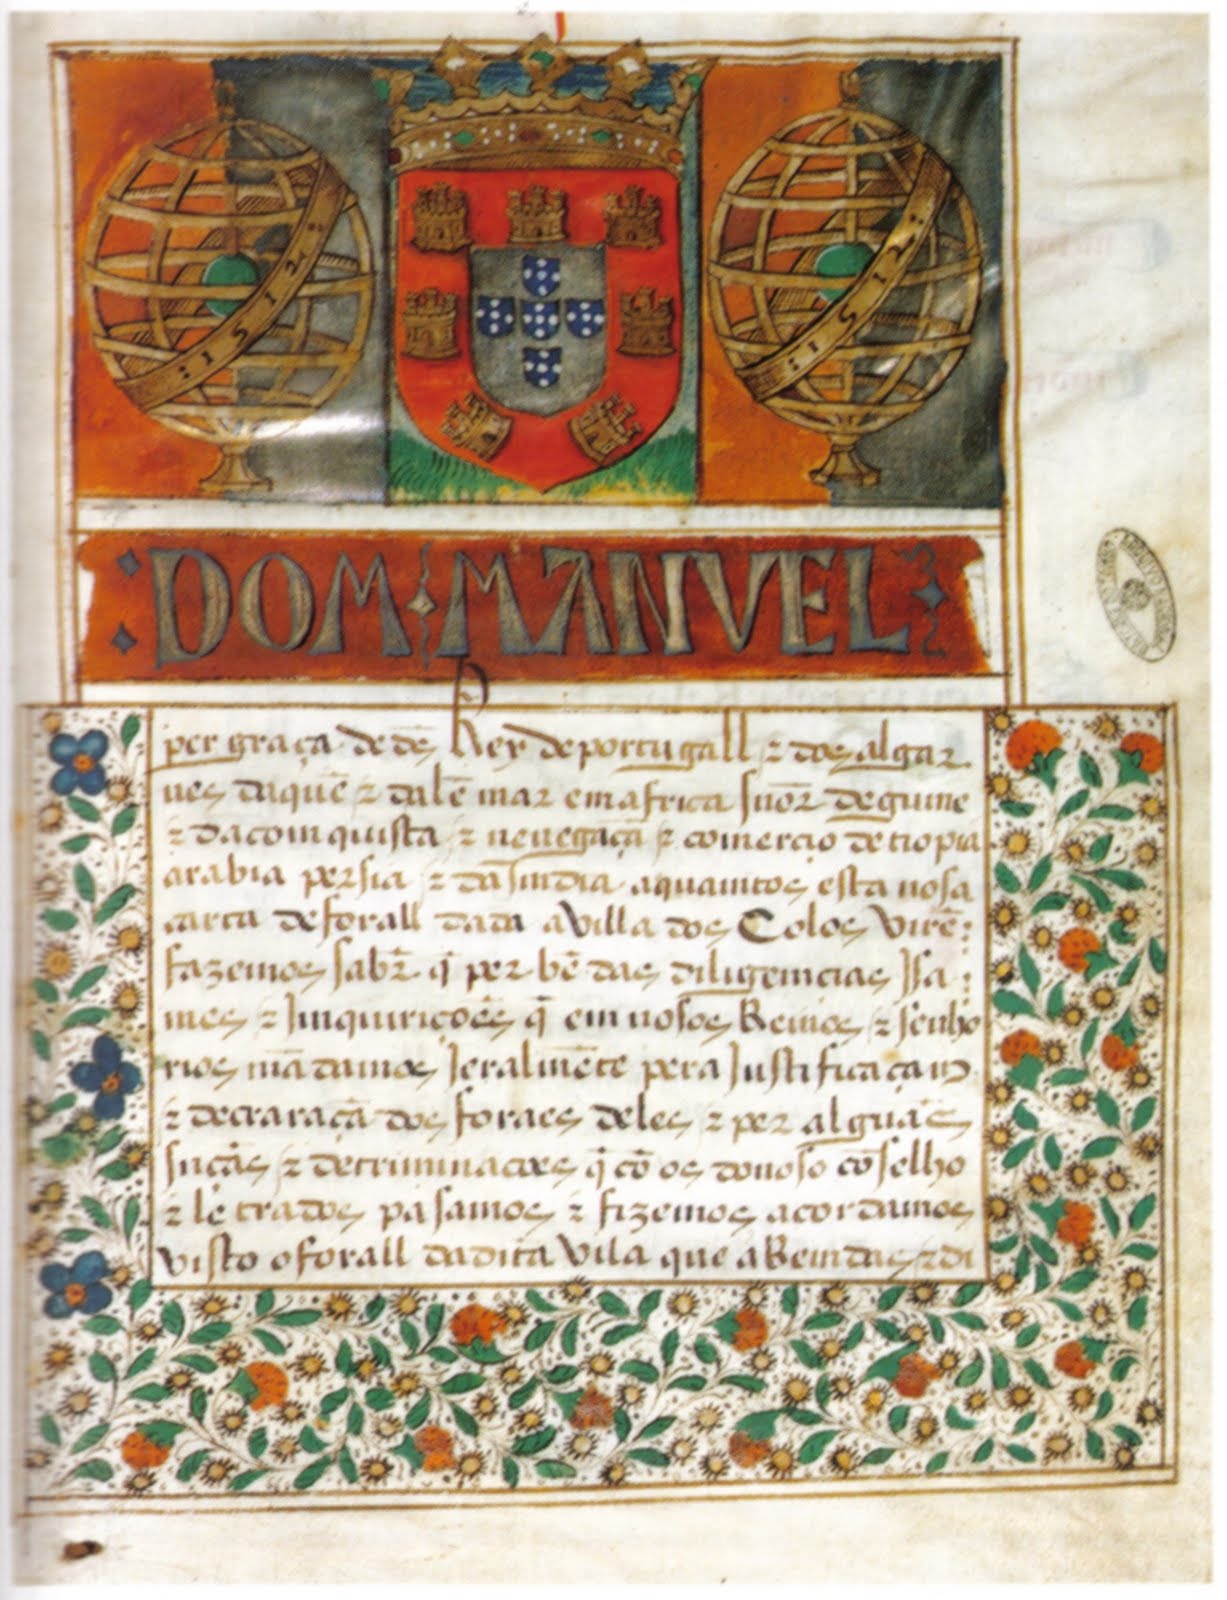 1512
1512
DOM MANVEL
per graça de dẽs Rey de portugall ⁊ dos algar
ues daquẽ ⁊ dalẽ mar em africa sñor de guine
⁊ da comquista ⁊ nevegaçã ⁊ comerçio de tiopia
arabia persia ⁊ da Jmdia aquamtos esta nosa
carta de forall dada a Villa dos Colos virẽ:
fazemos sabr̃ q̃ per bẽ das diligemcias Isa:
mes ⁊ Jmquiriçoẽs q̃ em nosos Reinos ⁊ senho
rios mãdamos Jeralmẽte pera Justificaçam
⁊ decraraçã dos foraes deles ⁊ per alguãs
suçãs ⁊ detriminacões q̃ cõ os do noso cõselho
⁊ letrados pasamos ⁊ fizemos acordamos
visto o forall da dita Vila que a Remdas ⁊ di